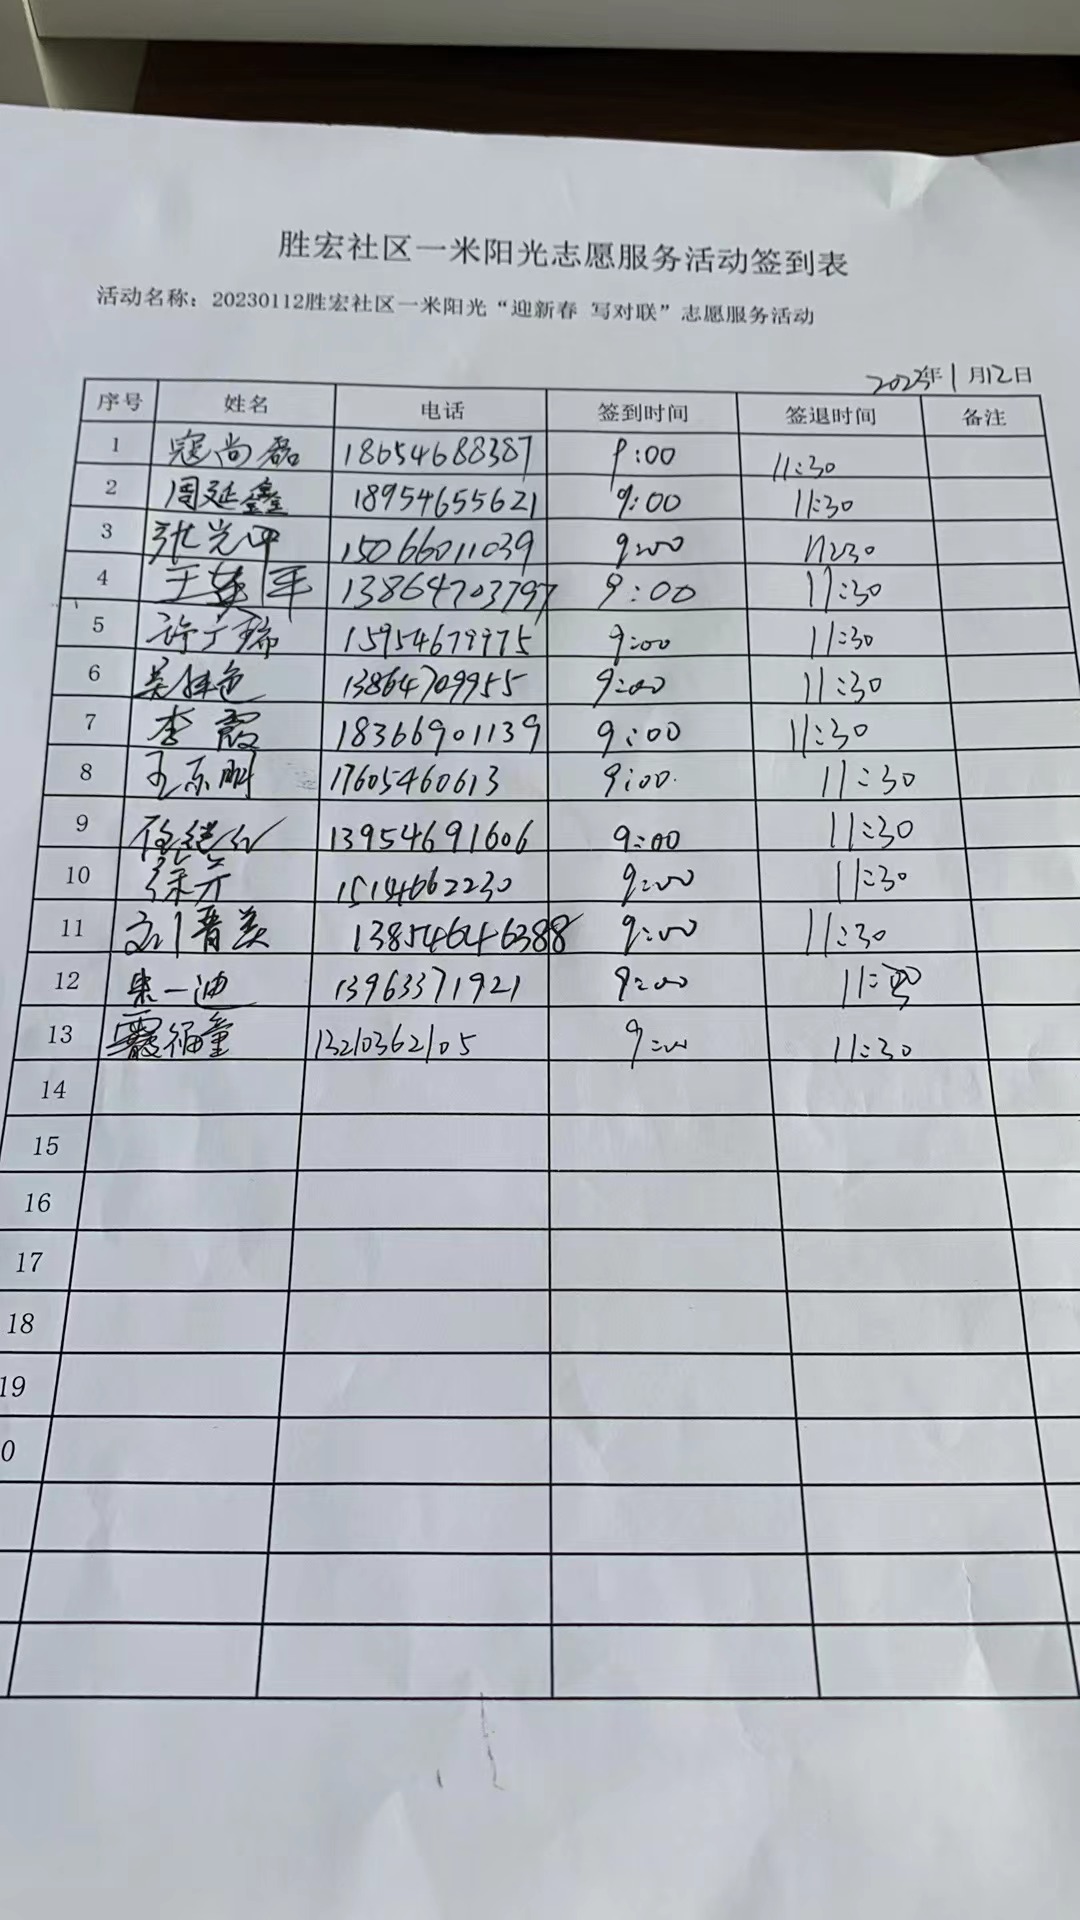 胜宏社区一米阳光志愿服务活动签到表
活动名称：20230112胜宏社区一米阳光“迎新春 写对联”志愿服务活动
2023年1月12日
序号 姓名 电话 签到时间 签退时间 备注
1 寇尚磊 18654688387 9:00 11:30
2 周延鑫 18954655621 9:00 11:30
3 张光平 15066011039 9:00 11:30
4 13864703797 9:00 11:30
5 许广瑞 15954679975 9:00 11:30
6 13864709955 9:00 11:30
7 李霞 18366901139 9:00 11:30
8 王东明 17605460613 9:00 11:30
9 13954691606 9:00 11:30
10 徐芳 9:00 11:30
11 刘晋美 13854646388 9:00 11:30
12 一迪 13963371921 9:00 11:30
13 福童 13210362105 9:00 11:30
14
15
16
17
18
19
0